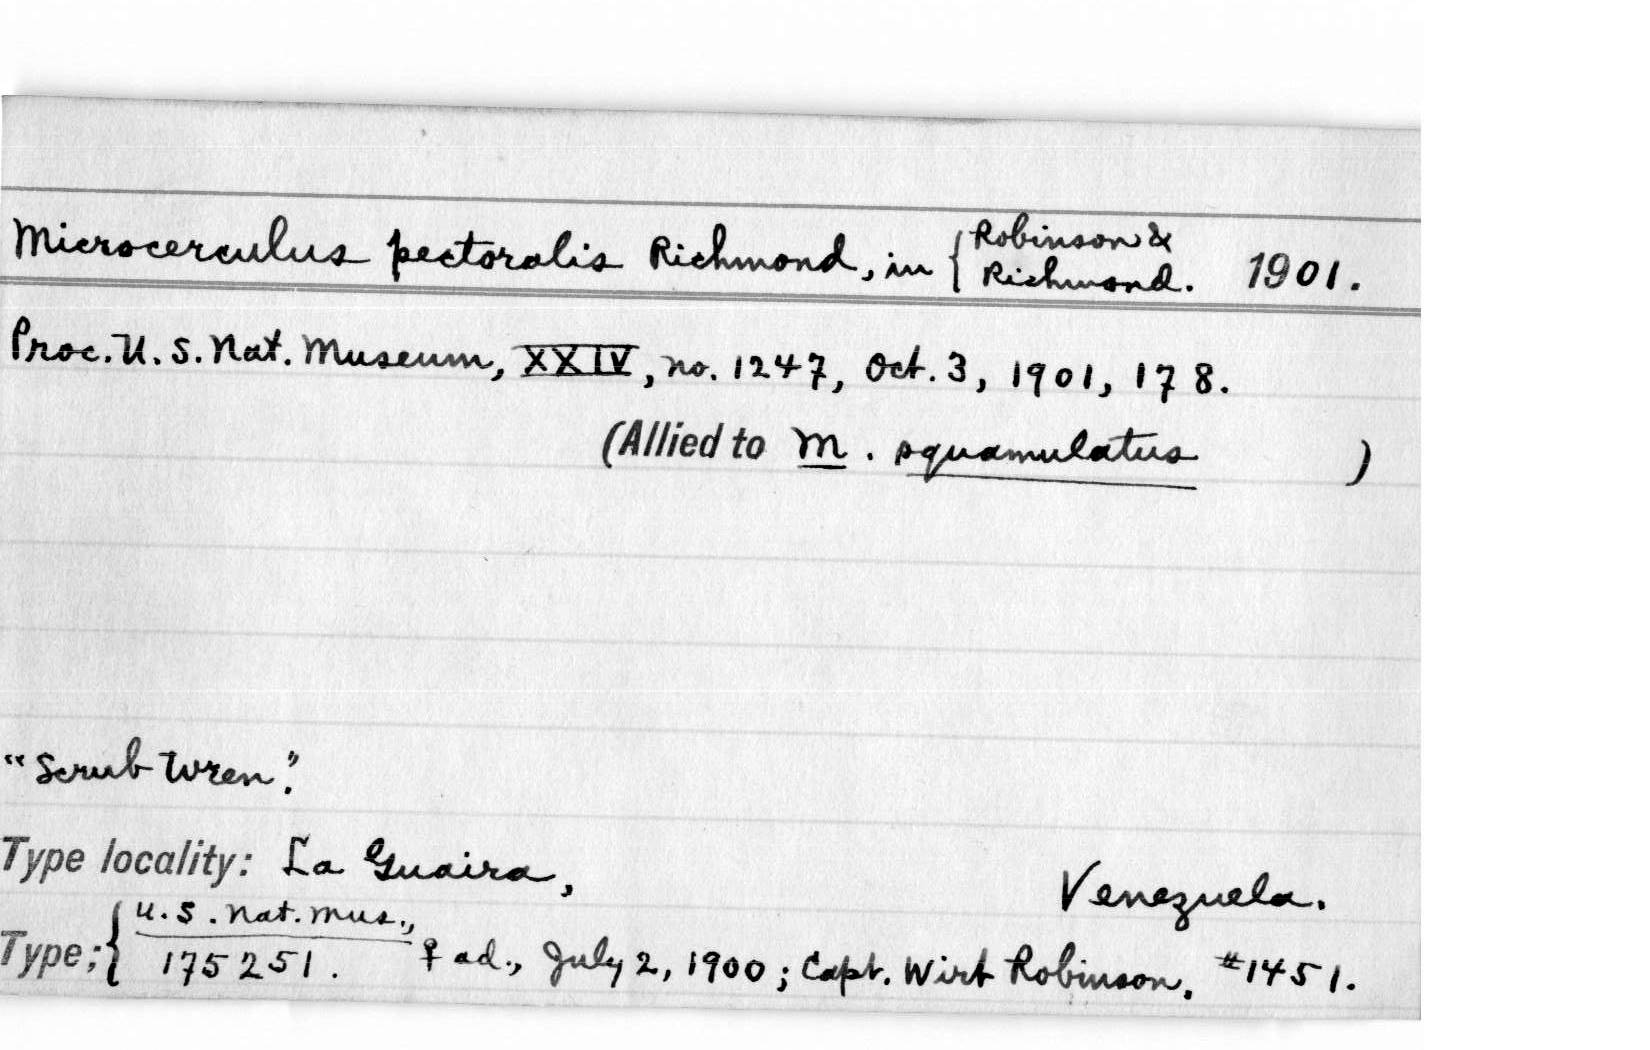 Microcerculus pectoralis Richmond, in { Robinson &
Richmond. 1901.
Proc. U. S. Nat. Museum, XXIV, no. 1247, Oct. 3, 1901, 178.
(Allied to M. squamulatus )
"Scrub Wren".
Type locality: La Guaira,
Venezuela.
Type; { U. S. Nat. Mus.,
175251. ♀ ad., July 2, 1900; Capt. Wirt Robinson, #1451.